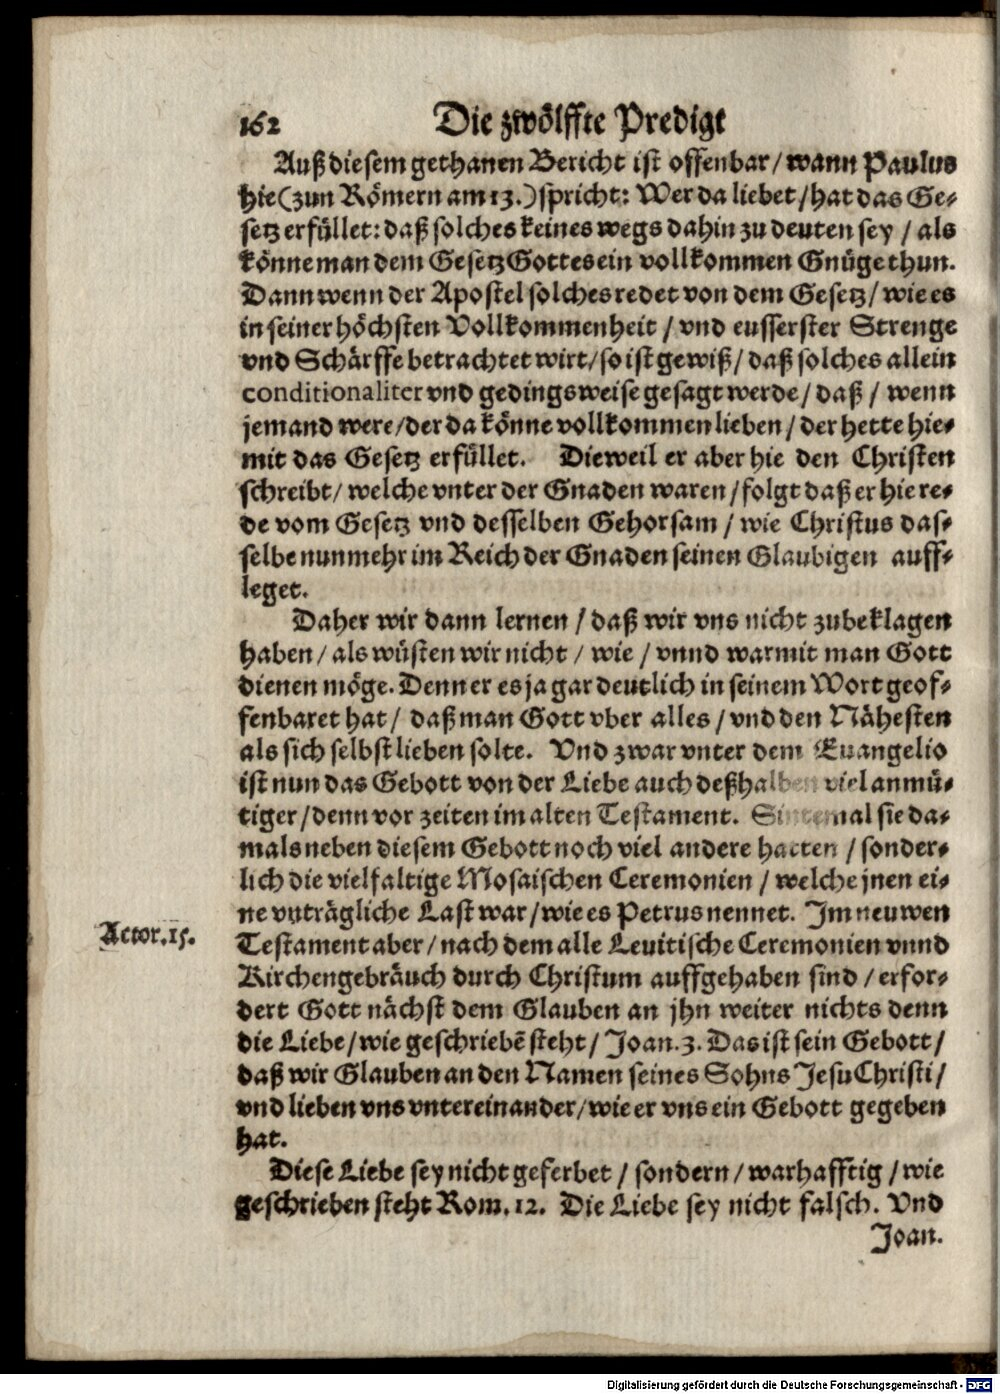 162 Die zwölffte Predigt
Auß diesem gethanen Bericht ist offenbar / wann Paulus
hie (zun Römern am 13.) spricht: Wer da liebet / hat das Ge-
setz erfüllet: daß solches keines wegs dahin zu deuten sey / als
könne man dem Gesetz Gottes ein vollkommen Gnüge thun.
Dann wenn der Apostel solches redet von dem Gesetz / wie es
in seiner höchsten Vollkommenheit / vnd eusserster Strenge
vnd Schärffe betrachtet wirt / so ist gewiß / daß solches allein
conditionaliter vnd gedings weise gesagt werde / daß / wenn
jemand were / der da könne vollkommen lieben / der hette hie-
mit das Gesetz erfüllet. Dieweil er aber hie den Christen
schreibt / welche vnter der Gnaden waren / folgt daß er hie re-
de vom Gesetz vnd desselben Gehorsam / wie Christus das-
selbe nunmehr im Reich der Gnaden seinen Glaubigen auff-
leget.
Daher wir dann lernen / daß wir vns nicht zubeklagen
haben / als wüsten wir nicht / wie / vnnd warmit man Gott
dienen möge. Denn er es ja gar deutlich in seinem Wort geof-
fenbaret hat / daß man Gott vber alles / vnd den Nähesten
als sich selbst lieben solte. Vnd zwar vnter dem Euangelio
ist nun das Gebott von der Liebe auch deßhalben viel anmü-
tiger / denn vor zeiten im alten Testament. Sintemal sie da-
mals neben diesem Gebott noch viel andere hatten / sonder-
lich die vielfaltige Mosaischen Ceremonien / welche jnen ei-
ne vnträgliche Last war / wie es Petrus nennet. Im neuwen
Actor. 15.
Testament aber / nach dem alle Leuitische Ceremonien vnnd
Kirchengebräuch durch Christum auffgehaben sind / erfor-
dert Gott nächst dem Glauben an jhn weiter nichts denn
die Liebe / wie geschriebē steht / Joan. 3. Das ist sein Gebott /
daß wir Glauben an den Namen seines Sohns Jesu Christi /
vnd lieben vns vntereinander / wie er vns ein Gebott gegeben
hat.
Diese Liebe sey nicht geferbet / sondern / warhafftig / wie
geschrieben steht Rom. 12. Die Liebe sey nicht falsch. Vnd
Joan.
Digitalisierung gefördert durch die Deutsche Forschungsgemeinschaft - DFG